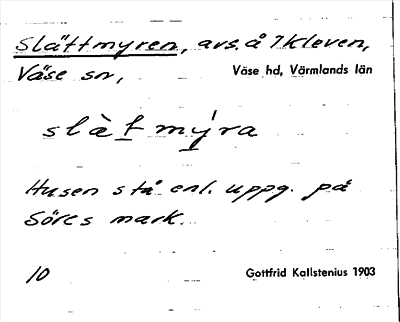 Slättmyren, avs. å 7 Kleven,
Väse sn, Väse hd, Värmlands län
slàt mýra
Husen stå enl. uppg. på
Sörs mark.
10 Gottfrid Kallstenius 1903